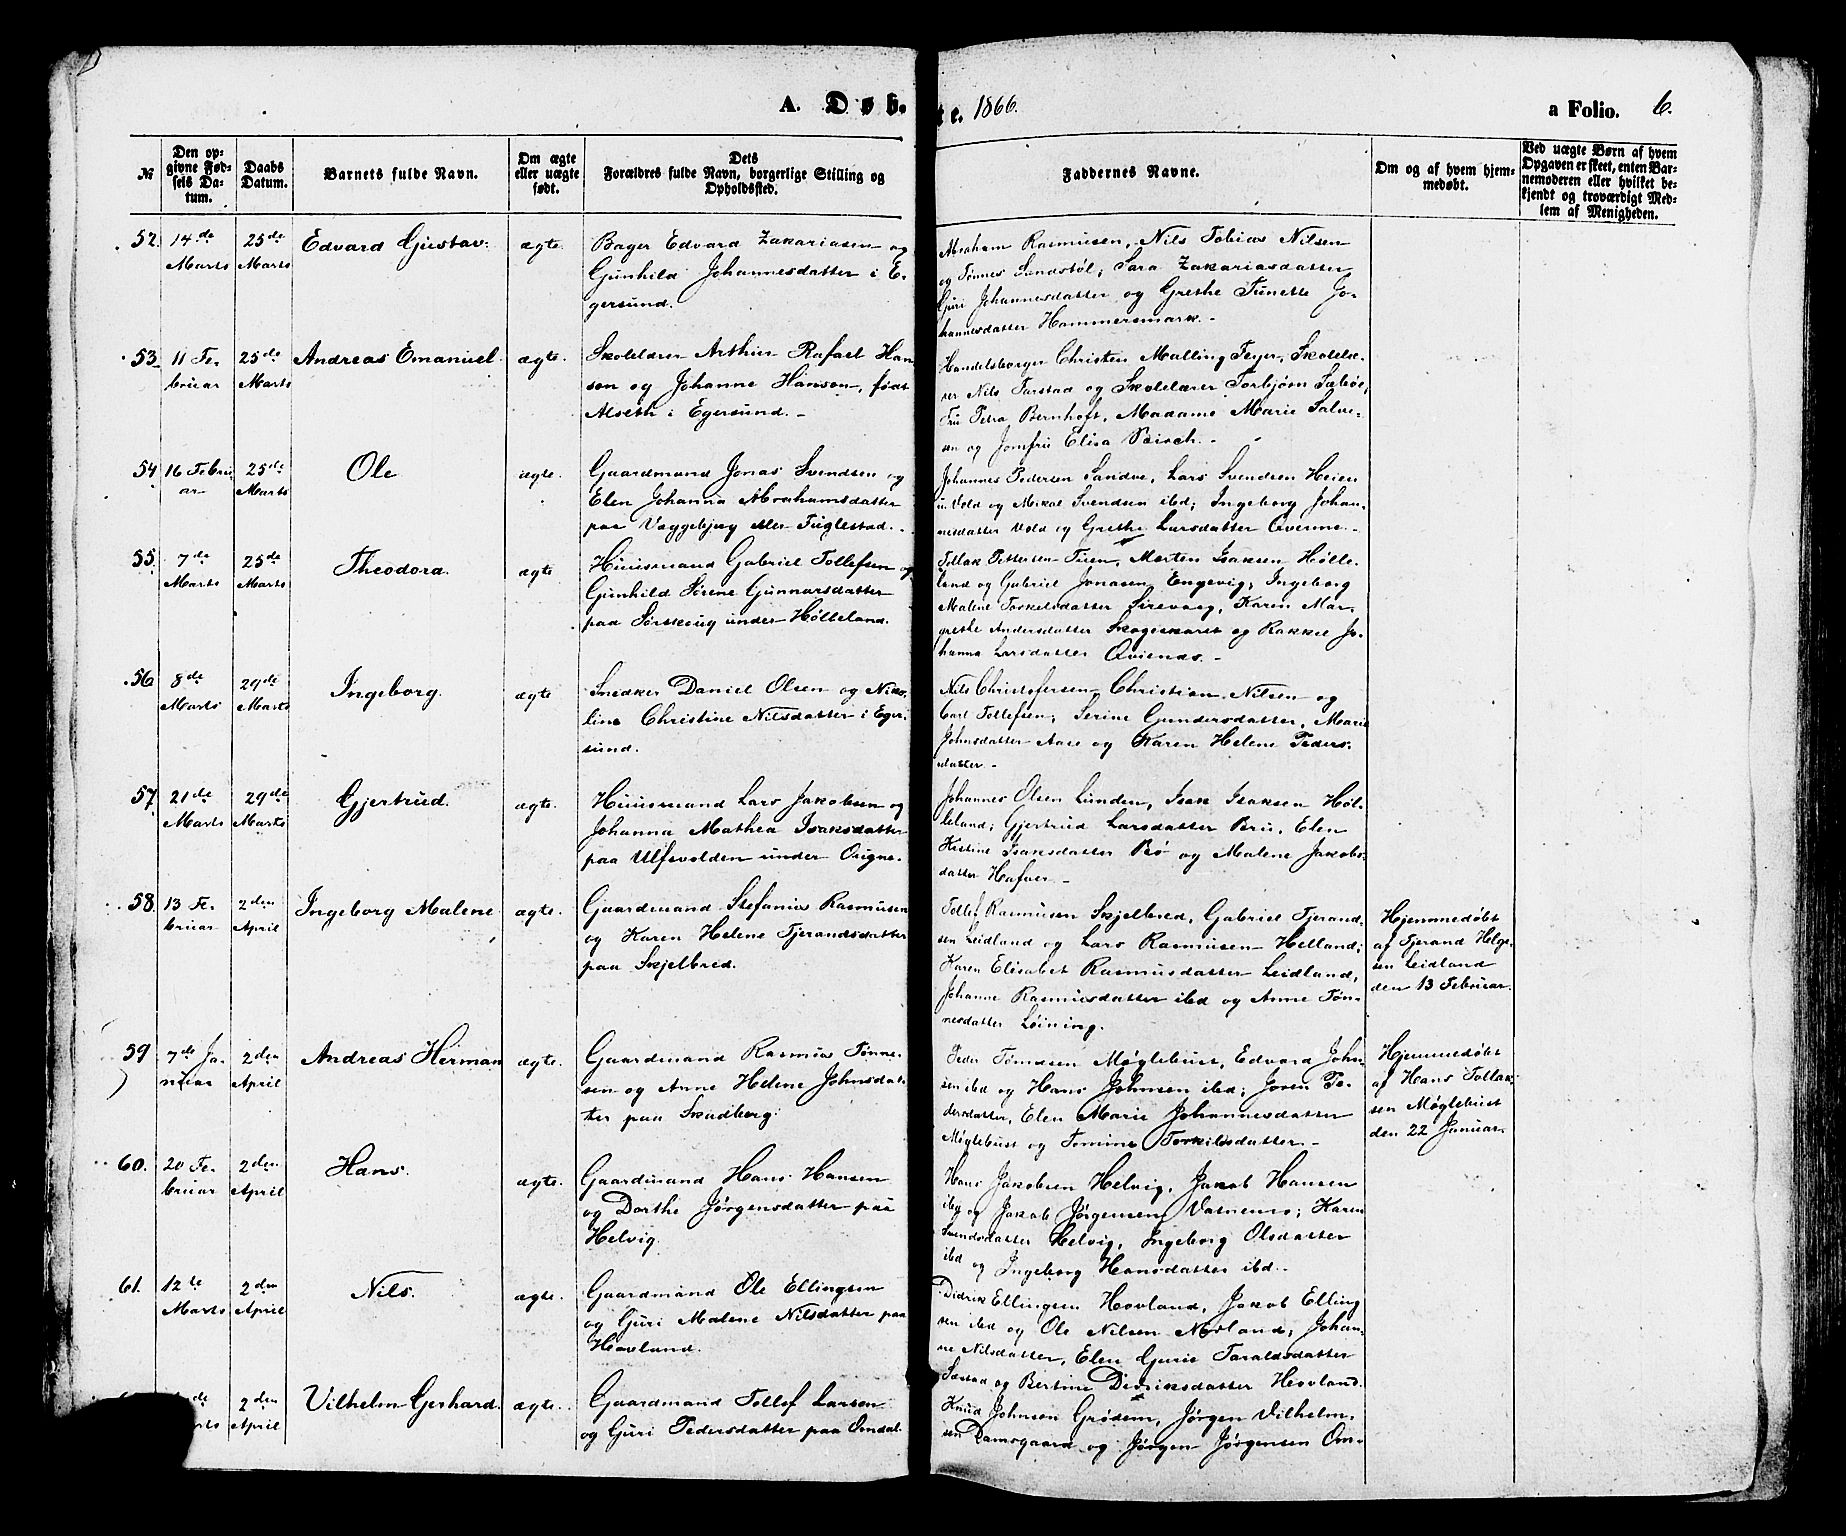 A. Døb.
te. 1866.
a Folio. 6.
№
Den opgivne Fødsels Datum.
Daabs Datum.
Barnets fulde Navn.
Om ægte eller uægte født.
Dets
Forældres fulde Navn, borgerlige Stilling og
Opholdssted.
Faddernes Navne.
Om og af hvem hjemmedøbt.
Ved uægte Børn af hvem
Opgaven er skeet, enten Barnemoderen eller hvilket bekjendt og troværdigt Medlem af Menigheden.
52. 14de Marts 25de Marts Edvard Gustav. ægte.
Bager Edvard Zakariasen og
Gunhild Johannesdatter i E-
gersund.
Abraham Rasmusen, Nils Tobias Nilsen
og Tønnes Sandstøl; Sara Zakariasdatter
Guri Johannesdatter og Grethe Tunette Jo-
hannesdatter Hammersmark.
53. 11 Februar 25de Marts Andreas Emanuel. ægte.
Skolelærer Arthur Rafael Han-
sen og Johanne Hanson, født
Alseth i Egersund.
Handelsborger Christen Malling Feyer, Skolelæ-
rer Nils Tarstad og Skolelærer Torbjørn Sæbøe;
Fru Petra Bernhoft, Madame Marie Salve-
sen og Jomfru Elisa
54 16 Februar 25de Marts Ole ægte.
Gaardmand Jonas Svendsen og
Elen Johanna Abrahamsdatter
paa Væggebjerg eller Fuglestad.
Johannes Pedersen Sandve, Lars Svendsen Heien
u. Vold og Mikal Svendsen ibd; Ingeborg Johan-
nesdatter Vold og Grethe Larsdatter
55. 7de Marts 25de Marts Theodora. ægte
Huusmand Gabriel Tollefsen og
Gunhild Sørine Gunnarsdatter
paa Sørskeug under Hølleland.
Tollak Pettersen Tuen, Morten Isaksen Hølle-
land og Gabriel Jonasen Engevig; Ingeborg
Malene Torkelsdatter Sirevaag, Karen Mar-
grethe Andersdatter Skogeskaret og Rakkel Jo-
hanna Larsdatter
56 8de Marts 29de Marts Ingeborg. ægte
Snedker Daniel Olsen og Niko-
line Christine Nilsdatter i Eger-
sund.
Nils Christofersen, Christian Nilsen og
Carl Tollefsen; Serine Gundersdatter, Marie
Johnsdatter Aase og Karen Helene Peders-
datter
57 21de Marts 29de Marts Gjertrud. ægte.
Huusmand Lars Jakobsen og
Johanna Mathea Isaksdatter
paa Ulfsvolden under Ougne.
Johannes Olsen Lunden, Isak Isaksen Høl-
leland; Gjertrud Larsdatter Bru, Elen
Kistine Isaksdatter Bø og Malene Jakobs-
datter Hafver
58. 13 Februar 2den April Ingeborg Malene ægte.
Gaardmand Stefanius Rasmusen
og Karen Helene Tjerandsdatter
paa Skjelbred.
Tollef Rasmusen Skjelbred, Gabriel Tjerand-
sen Leidland og Lars Rasmusen Helland;
Karen Elisabet Rasmusdatter Leidland,
Johanne Rasmusdatter ibd og Anne Tøn-
nesdatter Løining.
Hjemmedøbt
af Tjerand Helge-
sen Leidland
den 13 Februar.
59 7de Januar 2den April Andreas Herman ægte.
Gaardmand Rasmus Tønne-
sen og Anne Helene Johnsdat-
ter paa Skadberg.
Peder Tønnesen Møglebust, Edvard John-
sen ibd og Hans Johnsen ibd; Joren Pe-
dersdatter, Elen Marie Johannesdatter
Møglebust og Tomine Torkilsdatter.
Hjemmedøbt
af Hans Tollak-
sen Møglebust
den 22 Januar.
60. 20 Februar 2den April Hans. ægte.
Gaardmand Hans Hansen
og Dorthe Jørgensdatter paa
Helvig.
Hans Jakobsen Helvig, Jakob Hansen
ibd og Jakob Jørgensen Vatnemo; Karen
Svendsdatter Helvig, Ingeborg Olsdatter
ibd og Ingeborg Hansdatter ibd.
61. 12te Marts 2den April Nils. ægte.
Gaardmand Ole Ellingsen
og Guri Malene Nilsdatter paa
Hovland.
Didrik Ellingsen Hovland, Jakob Elling
sen ibd og Ole Nilsen Norland; Johan-
ne Nilsdatter, Elen Gurie Taraldsdatter
Sæstad og Bertine Didriksdatter Hovland.
de Marts 2den April Vilhelm Gerhard. ægte.
Gaardmand Tollef Larsen
og Guri Pedersdatter paa Omdal.
Knud Johnsen Grødem, Jørgen Vilhelm-
sen Damsgaard og Jørgen Jørgensen Om-